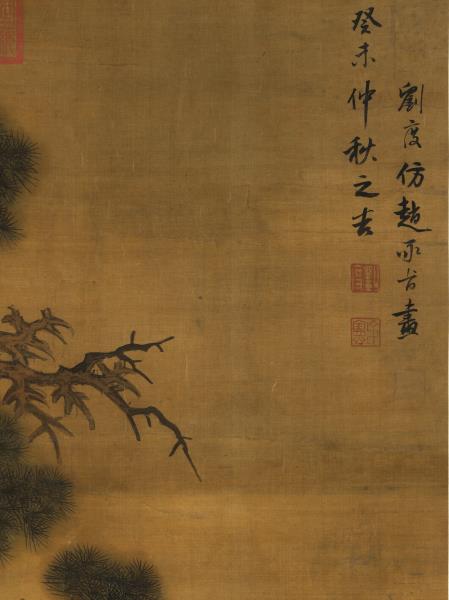 劉度仿趙承旨畫
癸未仲秋之吉